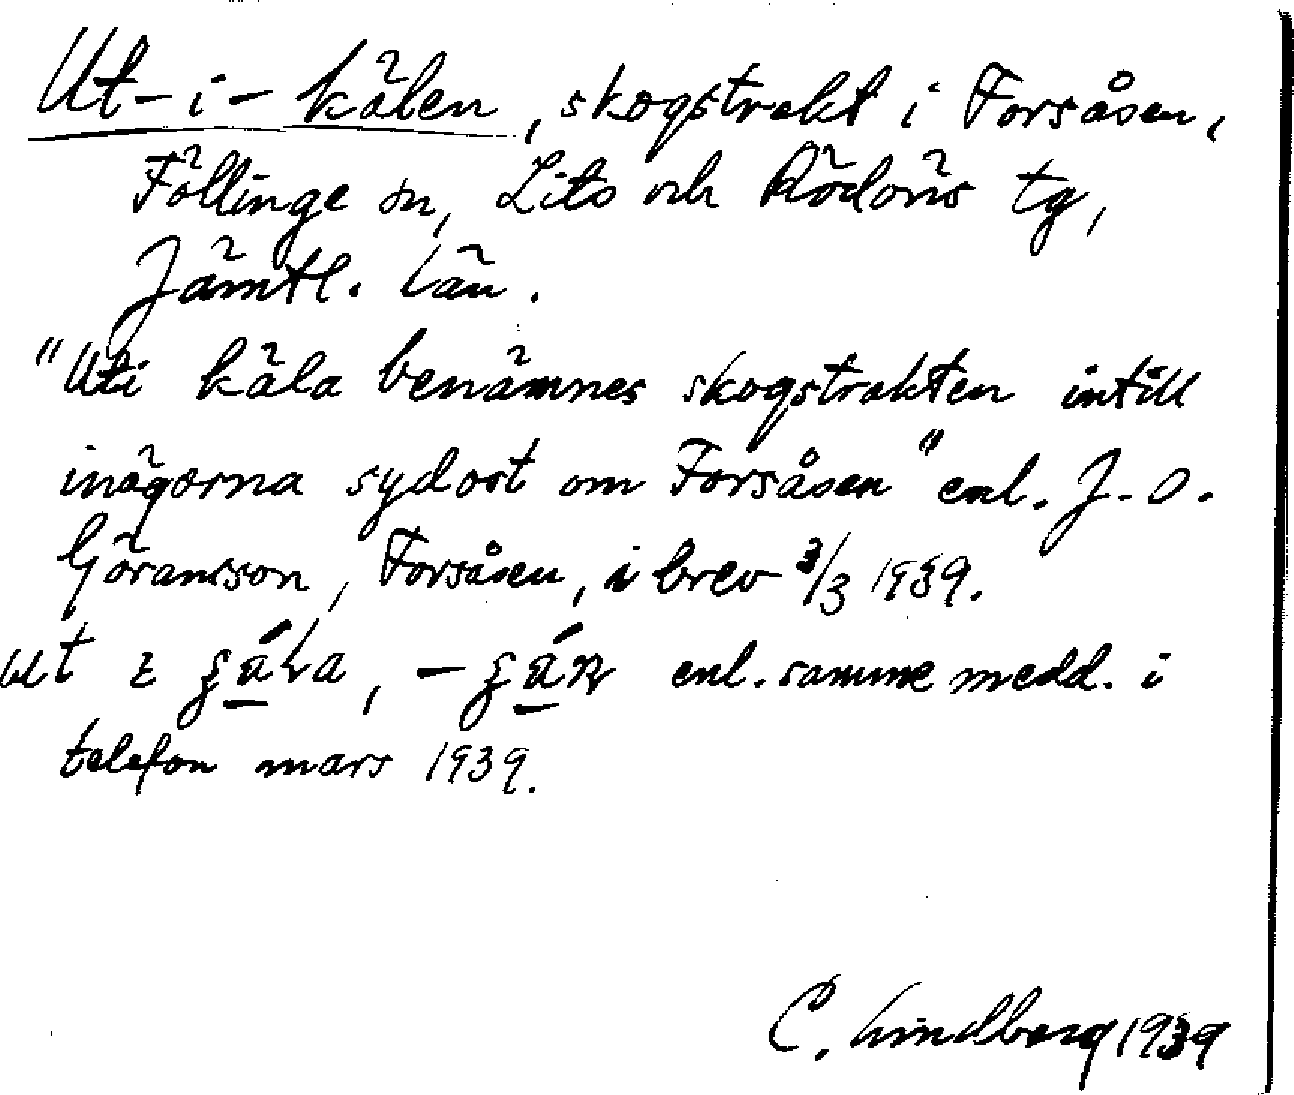 Ut-i-kälen, skogstrakt i Forsåsen,
Föllinge sn, Lits och Rödöns tg,
Jämtl. län.
"Uti käla benämnes skogstrakten intill
inägorna sydost om Forsåsen" enl. J. O.
Göransson, Forsåsen, i brev 3/3 1939.
ut i
enl. samme medd. i
telefon mars 1939.
C. Lindberg 1939